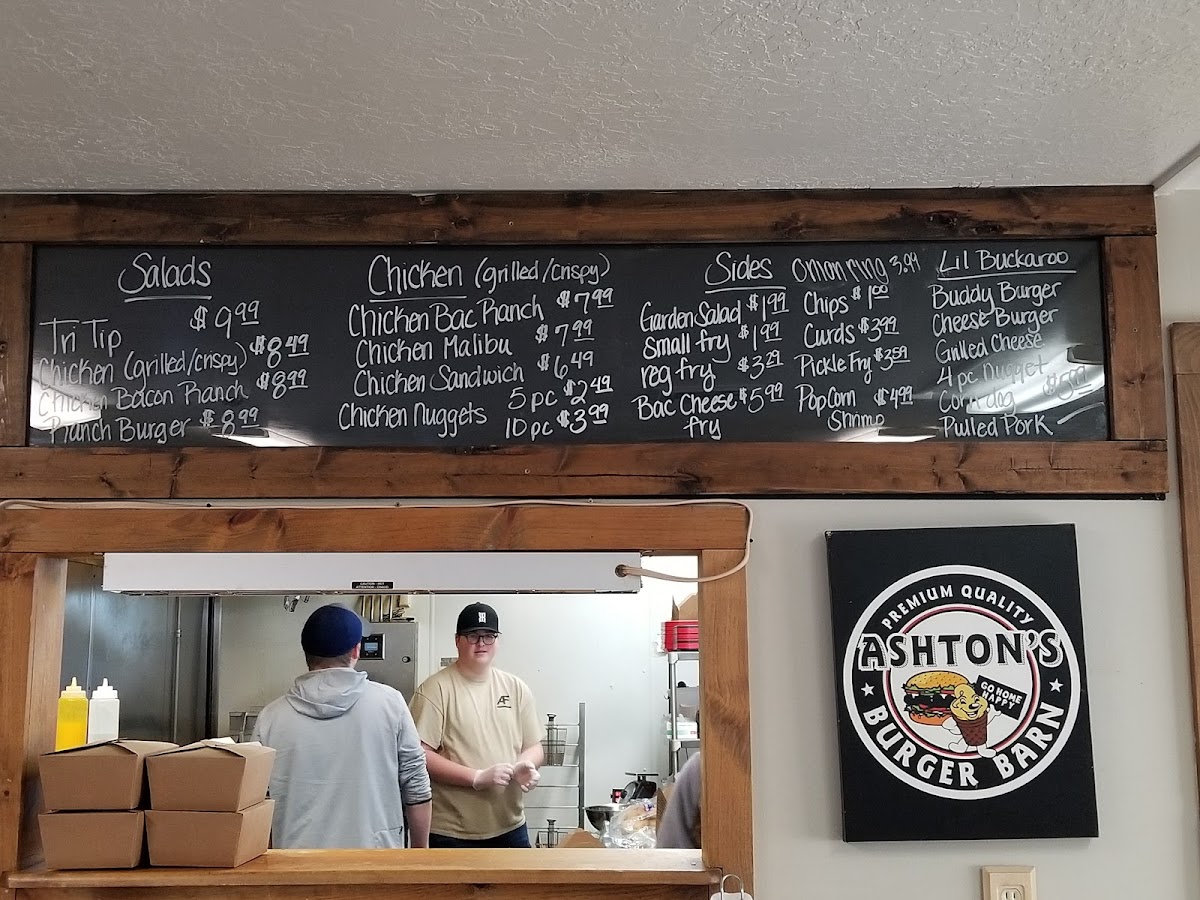 Salads
Tri Tip $9.99
Chicken (grilled/crispy) $8.49
Chicken Bacon Ranch $8.99
Ranch Burger $8.99
Chicken (grilled/crispy)
Chicken Bac Ranch $7.99
Chicken Malibu $7.99
Chicken Sandwich $6.49
Chicken Nuggets 5 pc $2.49
10 pc $3.99
Sides
Garden Salad $1.99
small fry $1.99
reg fry $3.29
Bac Cheese $5.99
fry
Onion ring 3.99
Chips $1.00
Curds $3.99
Pickle Fry $3.59
PopCorn $4.99
Shrimp
Lil Buckaroo
Buddy Burger
Cheese Burger
Grilled Cheese
4 pc Nugget
Corn dog
Pulled Pork
PREMIUM QUALITY
ASHTON'S
GO HOME
HAPPY
BURGER BARN
AF